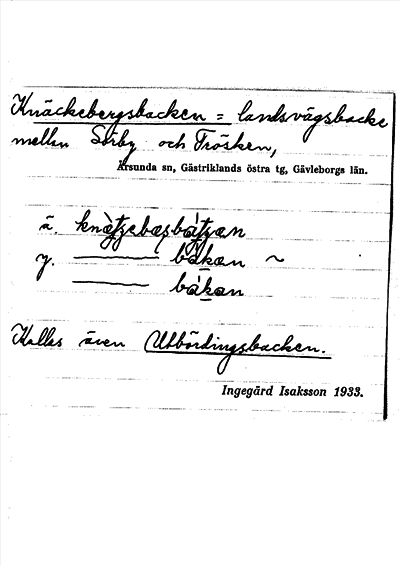 Knäckebergsbacken = landsvägsbacke
mellan Sörby och Trösken,
Årsunda sn, Gästriklands östra tg, Gävleborgs län.
ä.
y. ——— båkan ~
——— båkan
Kallas även Utbördingsbacken.
Ingegärd Isaksson 1933.